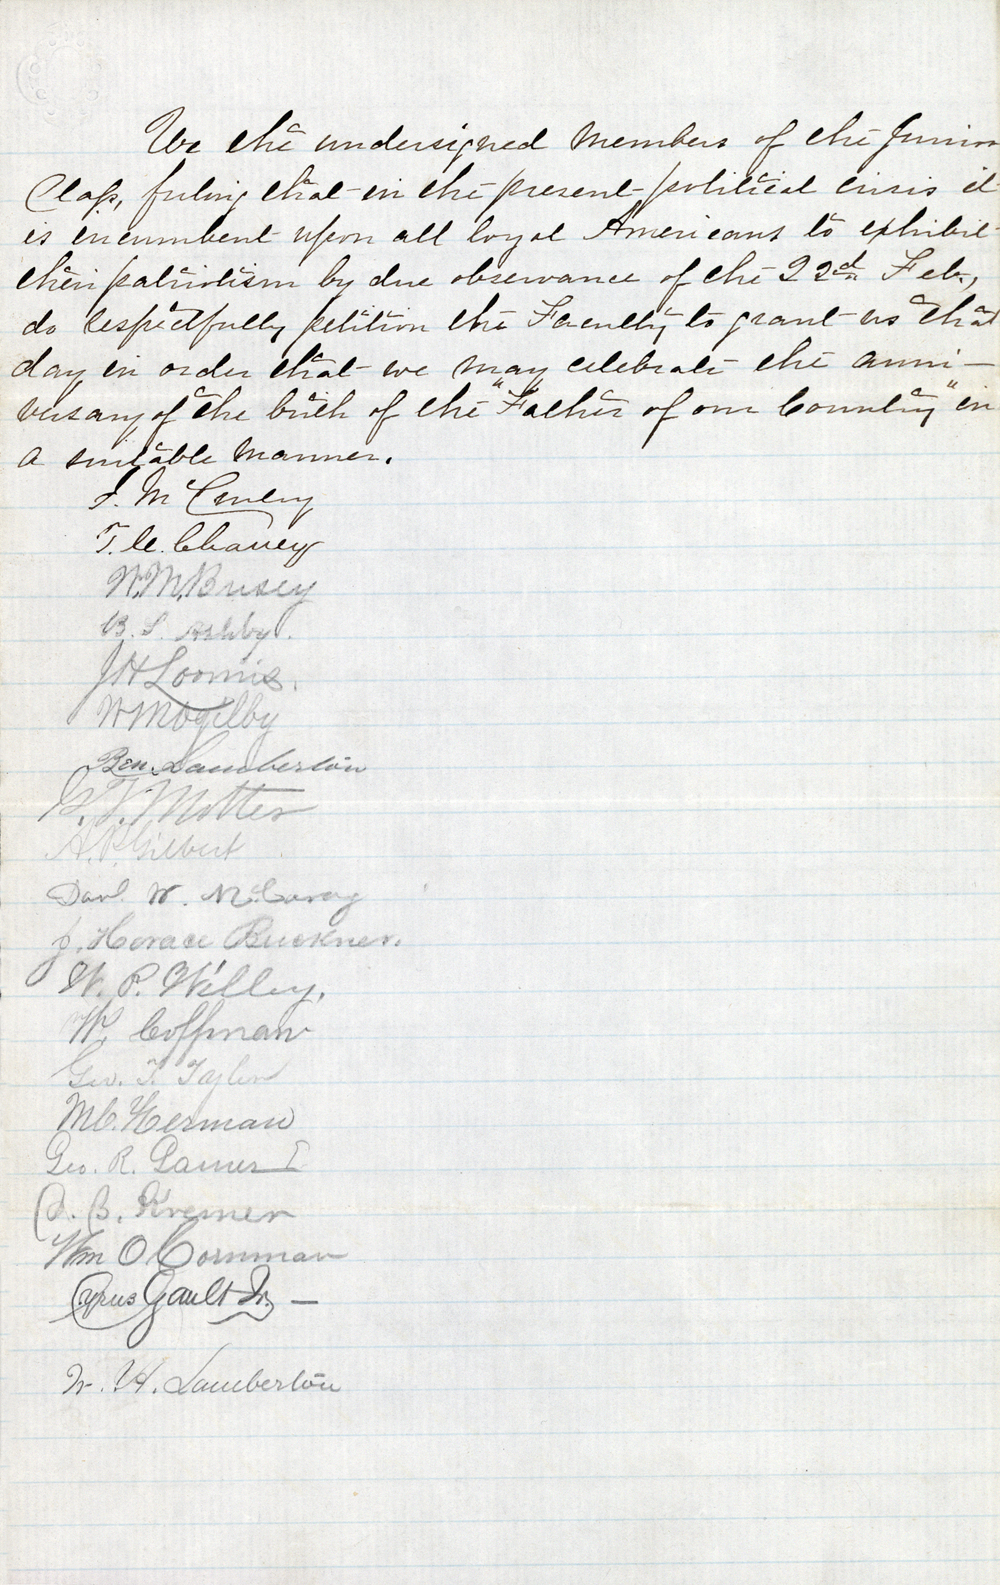 We the undersigned members of the Junior
Class, feeling that in the present political crisis it
is incumbent upon all loyal Americans to exhibit
their patriotism by due observance of the 22d Feb.,
do respectfully petition the Faculty to grant us that
day in order that we may celebrate the anni-
versary of the birth of the "Father of our Country" in
a suitable manner.
T. C. Chaney
W. M. Busey
B. S. Ashby.
J H Loomis.
W M Ogilby
Ben. Lamberton
G. T. Motter
A. P. Gilbert
W. McCurdy
J. Horace Buckner.
W. P. Willey.
W. Coffman
Geo. T. Tyler
M C. Herman
Geo. R. Garner
B. Kremer
Wm O Cornman
Cyrus Gault Jr. —
W. H. Lamberton